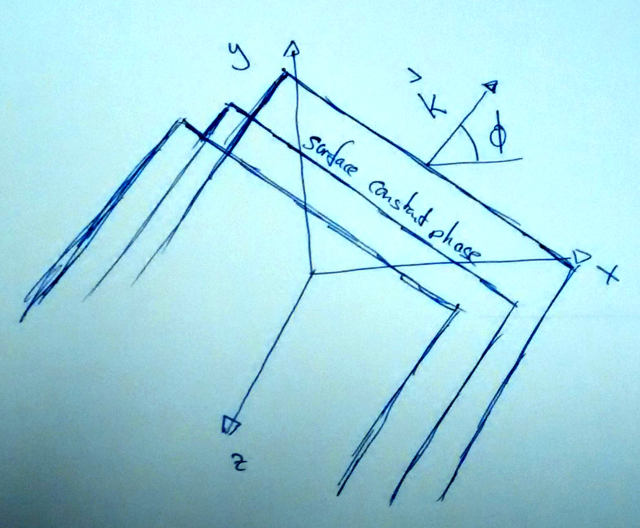 y
k̂
ϕ
surface constant phase
x
z